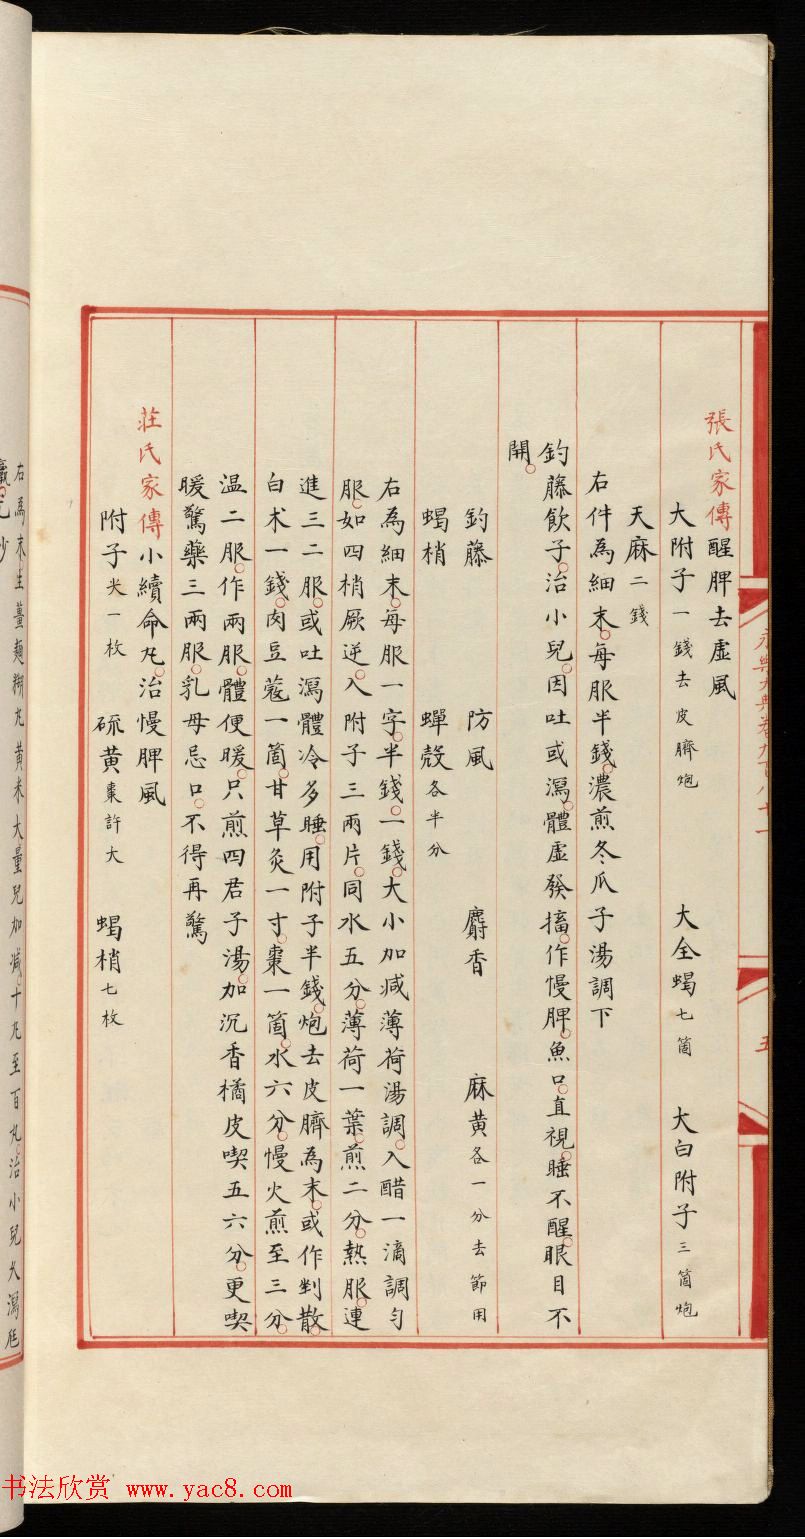 張氏家傳醒脾去虛風
大附子一錢去皮臍炮 大全蝎七箇 大白附子三箇炮
天麻二錢
右件為細末每服半錢濃煎冬瓜子湯調下
釣藤飲子治小兒因吐或瀉體虛發搐作慢脾魚口直視睡不醒眼目不
開
釣藤 防風 麝香 麻黃各一分去節用
蝎梢 蟬殼各半分
右為細末每服一字半錢一錢大小加减薄荷湯調入醋一滴調勻
服如四梢厥逆入附子三兩片同水五分薄荷一葉煎二分熱服連
進三二服或吐瀉體冷多睡用附子半錢炮去皮臍為末或作剉散
白术一錢肉豆蔻一箇甘草炙一寸棗一箇水六分慢火煎至三分
温二服作兩服體便暖只煎四君子湯加沉香橘皮喫五六分更喫
暖驚藥三兩服乳母忌口不得再驚
莊氏家傳小續命丸治慢脾風
附子大一枚 硫黃棗許大 蝎梢七枚
永樂大典卷九百八十一
五
右為末生薑麵糊丸黃米大量兒加减十丸至百丸治小兒久瀉尫
羸
书法欣赏 www.yac8.com